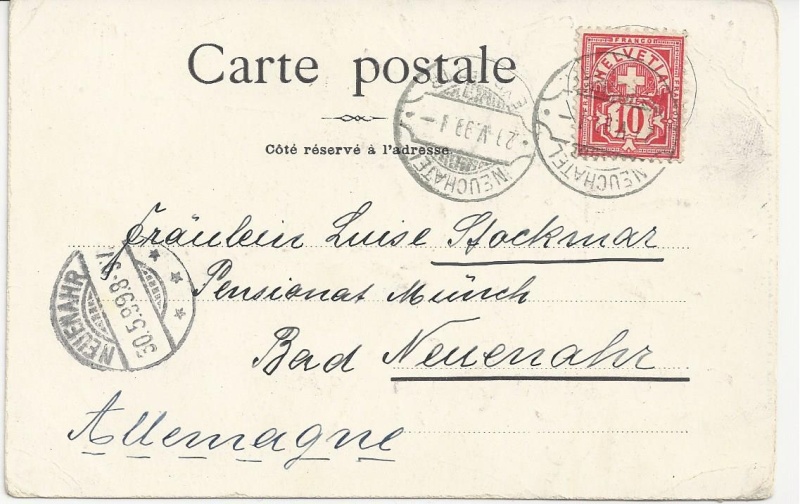 Carte postale
Côté réservé à l'adresse.
FRANCO
HELVETIA
10
NEUCHATEL
29.V.99
NEUCHATEL
Fräulein Luise Stockmar
Pensionat Münch
Bad Neuenahr
Allemagne
NEUENAHR
30.5.99.8-9V.